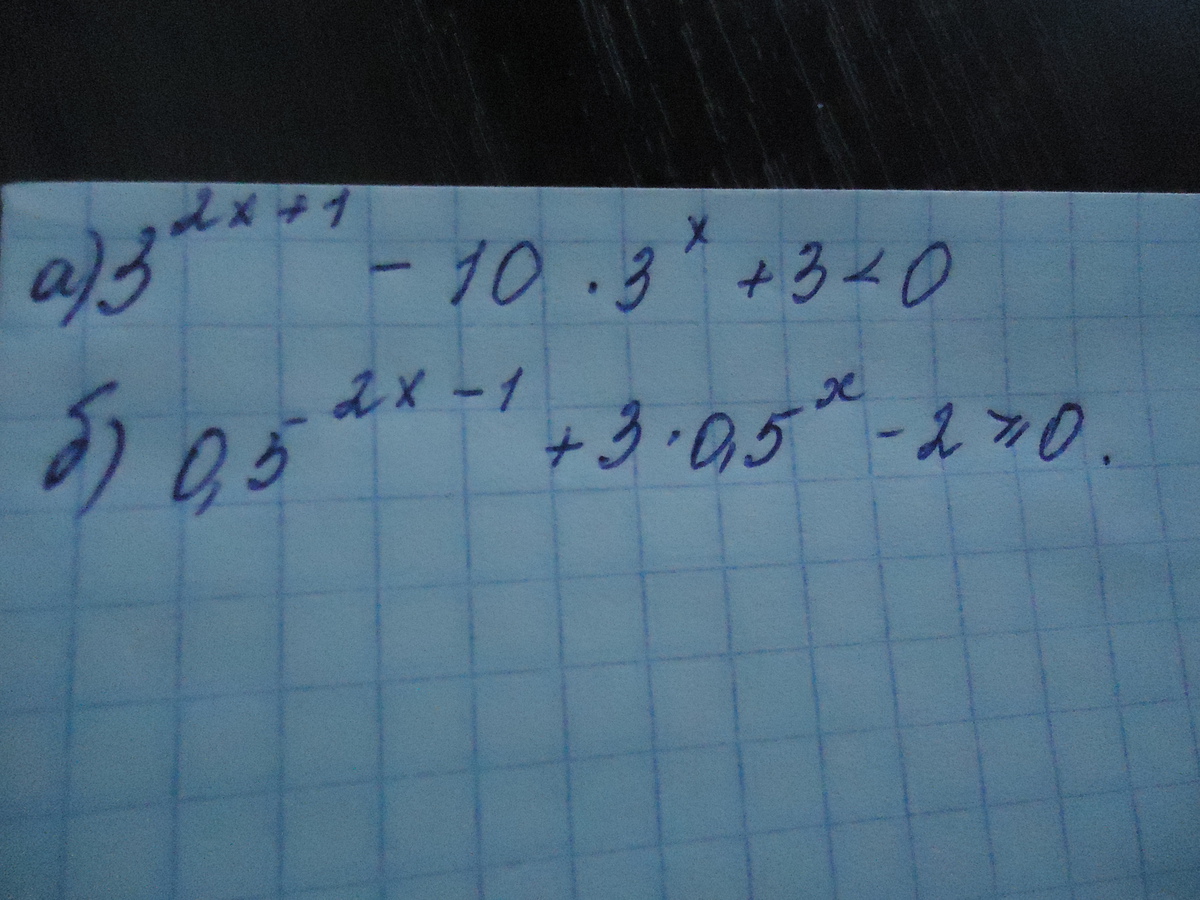 а) 3^{2x+1} - 10 · 3^x + 3 < 0
б) 0,5^{2x-1} + 3 · 0,5^x - 2 ⩾ 0.